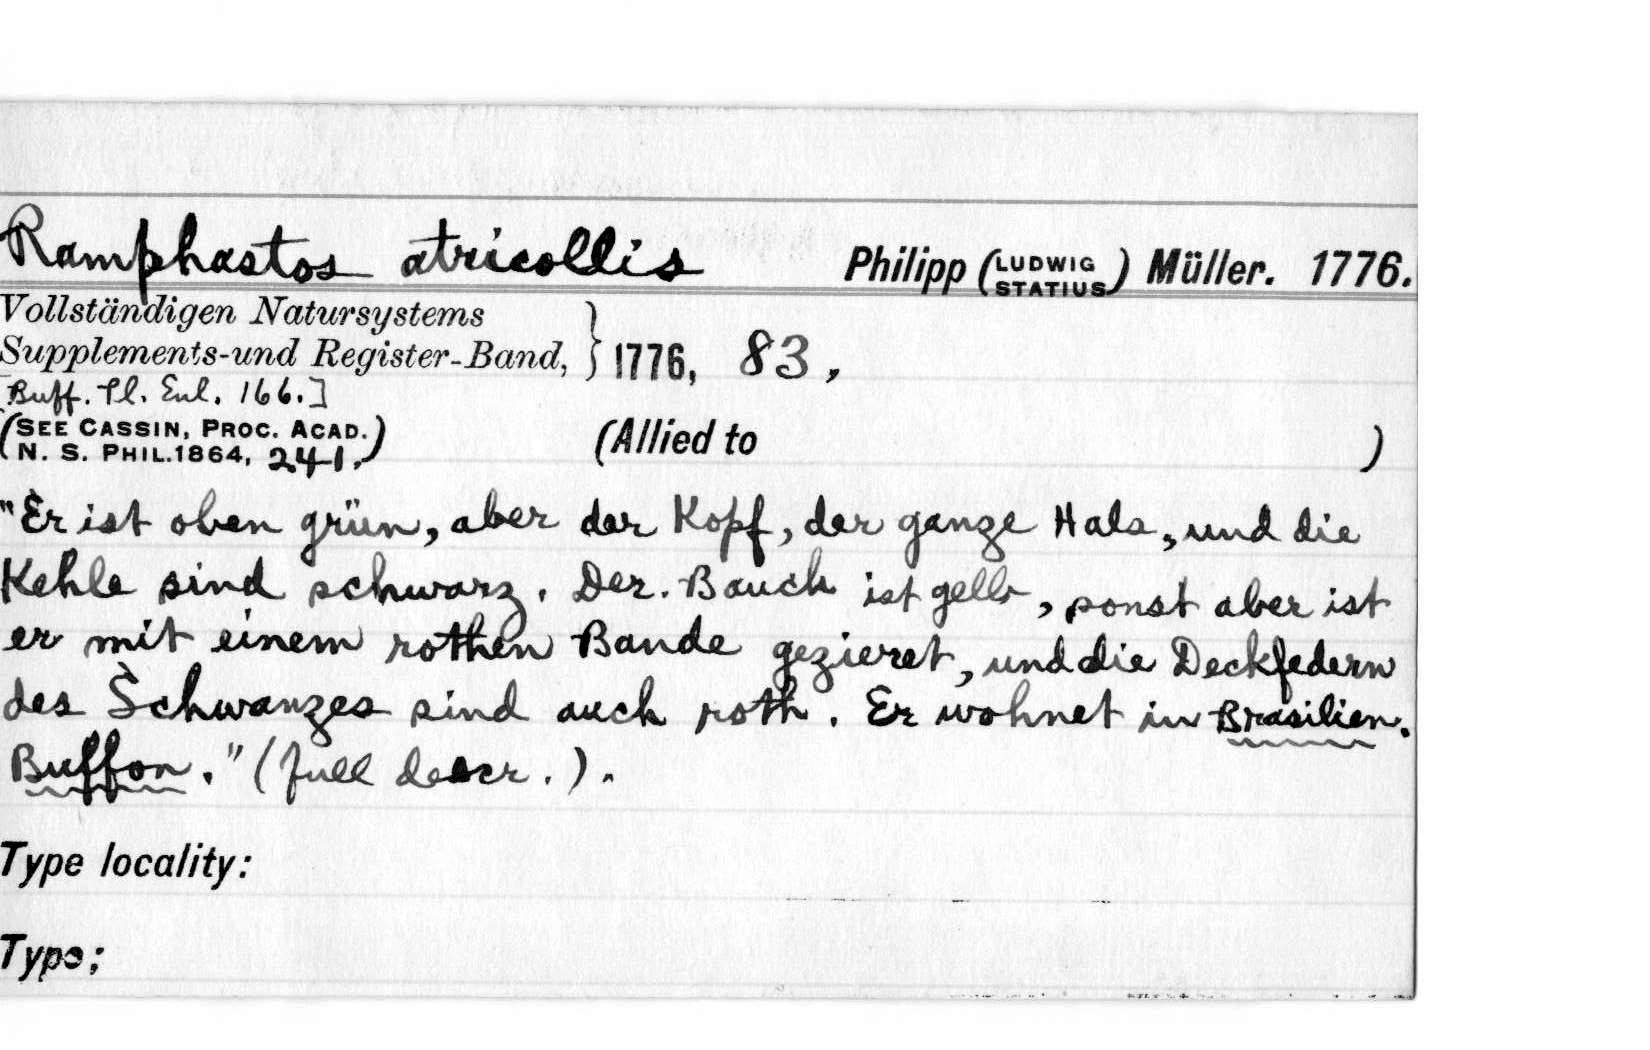 Ramphastos atricollis Philipp (LUDWIG STATIUS) Müller. 1776.
Vollständigen Natursystems
Supplements-und Register-Band, } 1776, 83,
[Buff. Pl. Enl. 166.]
(SEE CASSIN, PROC. ACAD.
N. S. PHIL. 1864, 241.) (Allied to )
"Er ist oben grün, aber der Kopf, der ganze Hals, und die
Kehle sind schwarz. Der Bauch ist gelb, sonst aber ist
er mit einem rothen Bande gezieret, und die Deckfedern
des Schwanzes sind auch roth. Er wohnet in Brasilien.
Buffon." (full descr.).
Type locality:
Type;